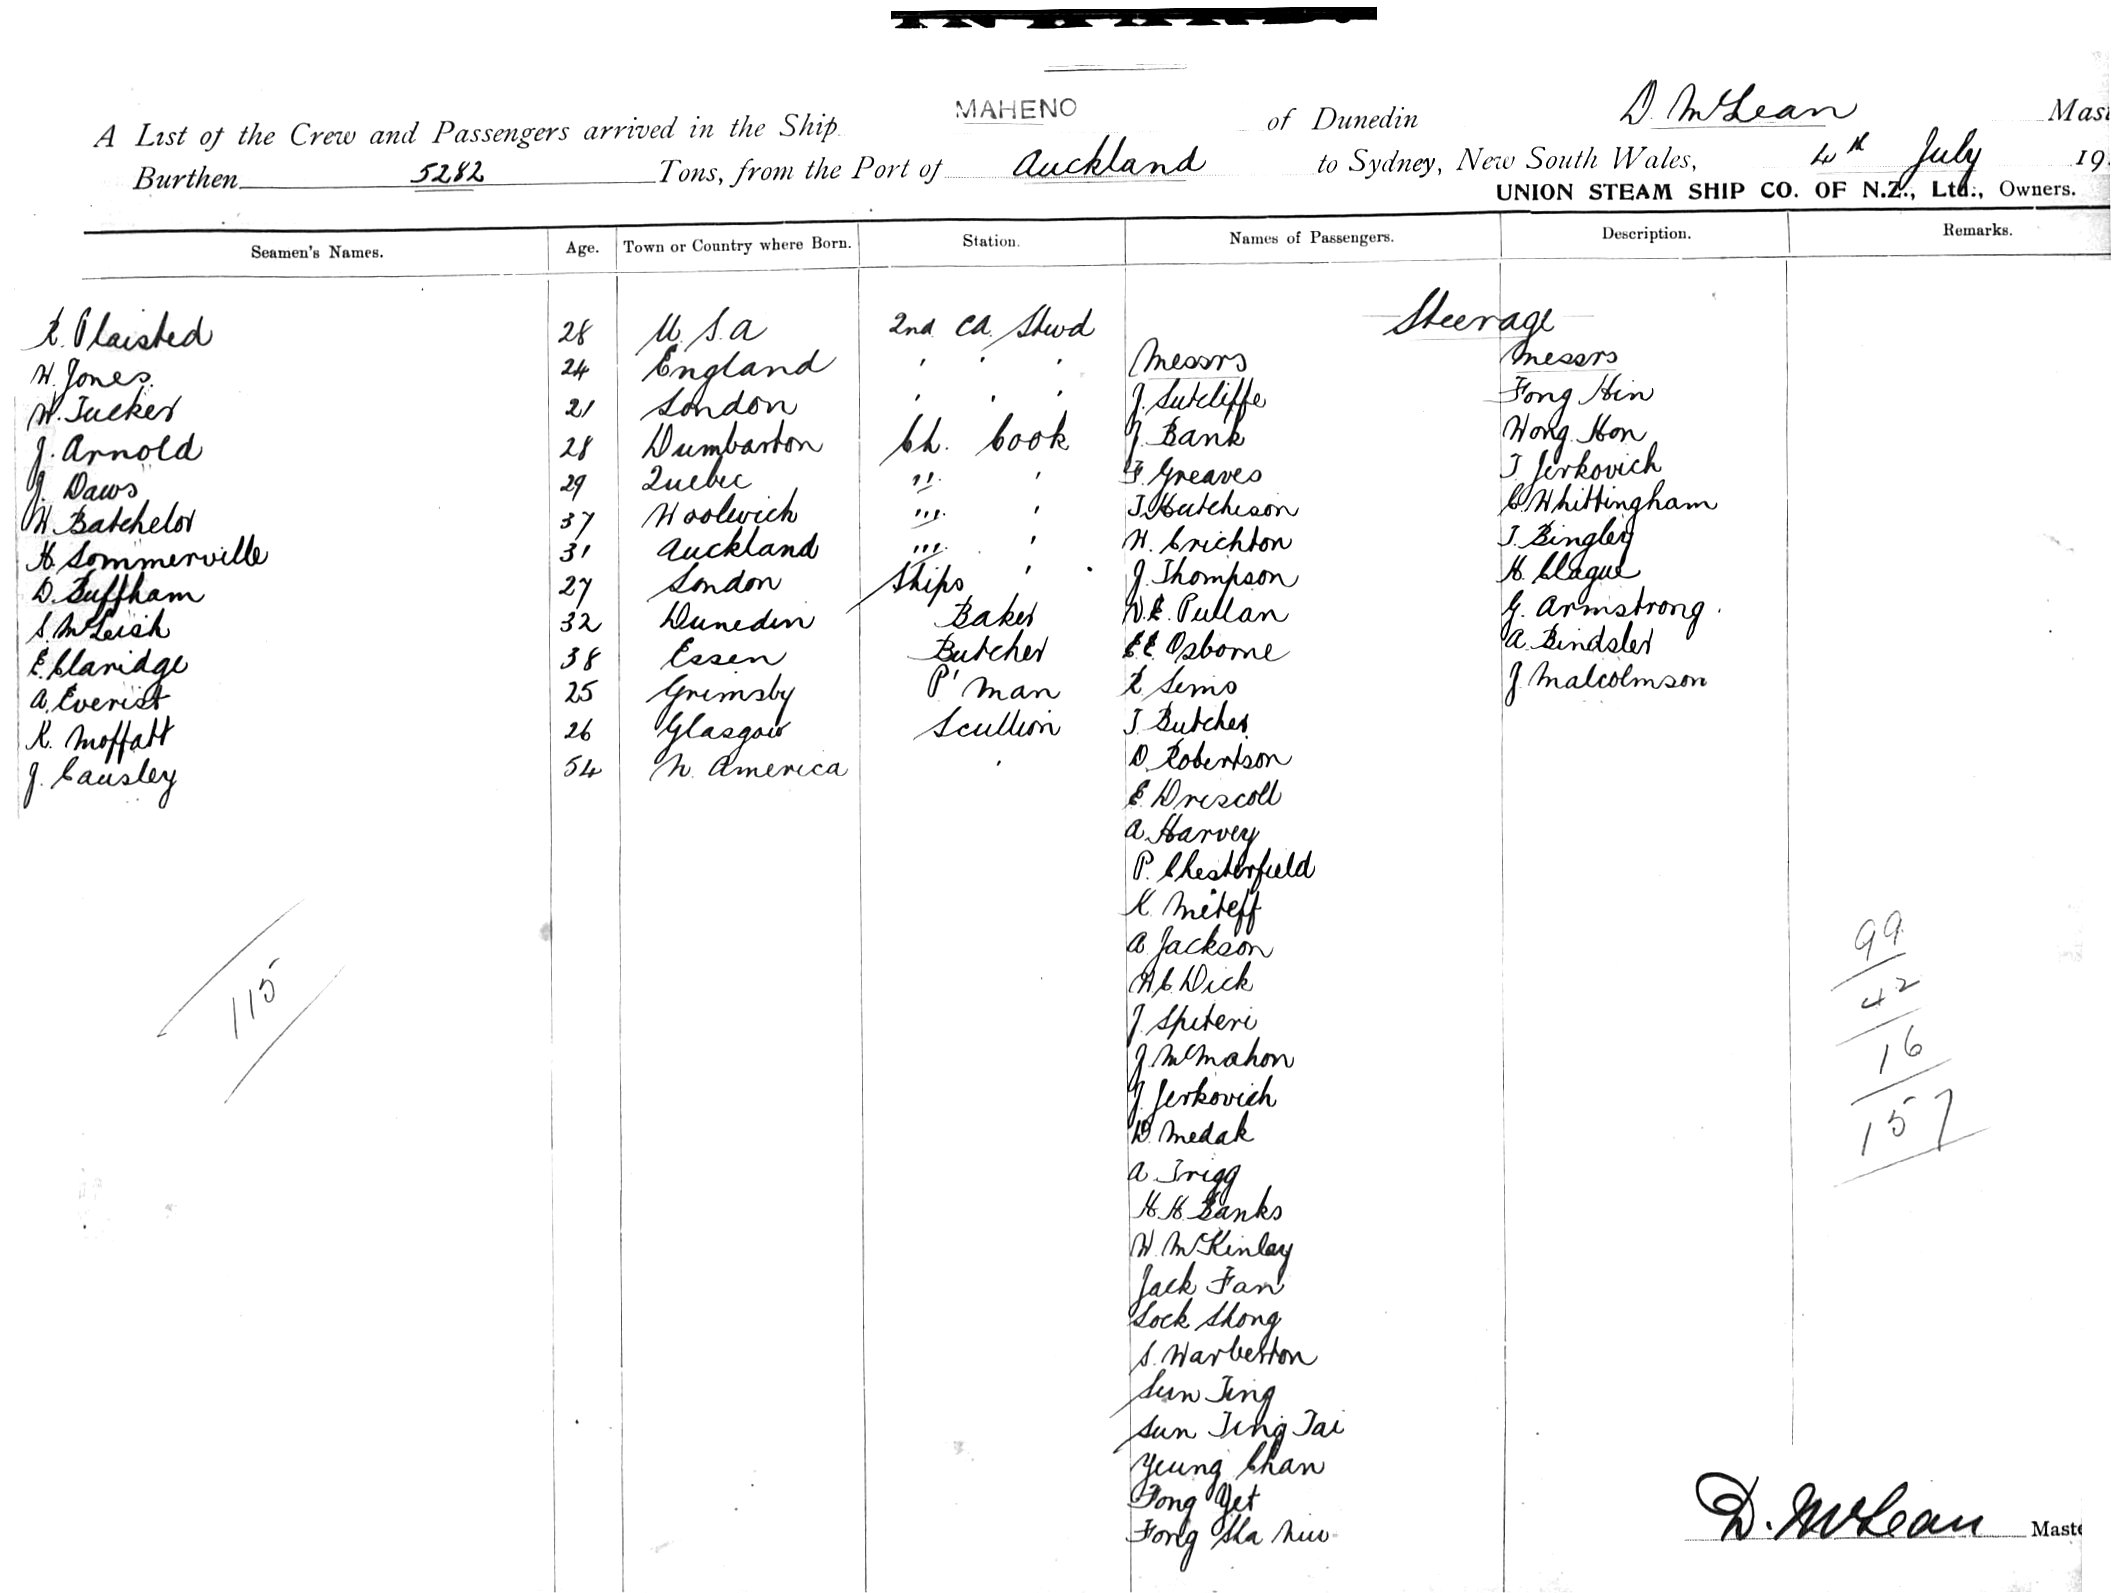 MAHENO
A List of the Crew and Passengers arrived in the Ship of Dunedin D. McLean Mas
Burthen 5282 Tons, from the Port of Auckland to Sydney, New South Wales, 4th July 19
UNION STEAM SHIP CO. OF N.Z., Ltd., Owners.
Seamen's Names. Age. Town or Country where Born. Station. Names of Passengers. Description. Remarks.
Steerage
R. Plaisted 28 U.S.A 2nd Cl. Stwd
W. Jones 24 England ' ' ' Messrs Messrs
W. Tucker 21 London ' ' ' J. Sutcliffe Fong Hin
J. Arnold 28 Dumbarton Ch. Cook J. Bank Wong Hon
J. Daws 29 Quebec " ' F. Greaves T. Jerkovich
W. Batchelor 37 Woolwich " ' J. Hutcheson C. Whittingham
H. Sommerville 31 Auckland " ' W. Crichton T. Bingley
D. Buffham 27 London Ships ' J. Thompson H. Clague
S. McLeish 32 Dunedin Baker W.E. Pullan G. Armstrong
E. Claridge 38 Essen Butcher E.E. Osborne A. Bindsler
A. Everist 25 Grimsby P'man R. Sems J. Malcolmson
R. Moffatt 26 Glasgow Scullion T. Butcher
J. Causley 54 N. America ' D. Robertson
E. Driscoll
A. Harvey
P. Chesterfield
K. Miteff
A. Jackson
W.C. Dick
J. Spiteri
J. McMahon
J. Jerkovich
D. Medak
A. Trigg
H.H. Banks
W. McKinlay
Jack Fan
Sock Shong
S. Warberton
Sun Ting
Sun Ting Tai
Yeung Chan
Fong Yet
Fong Sha Niu
115
99
42
16
157
D. McLean Maste